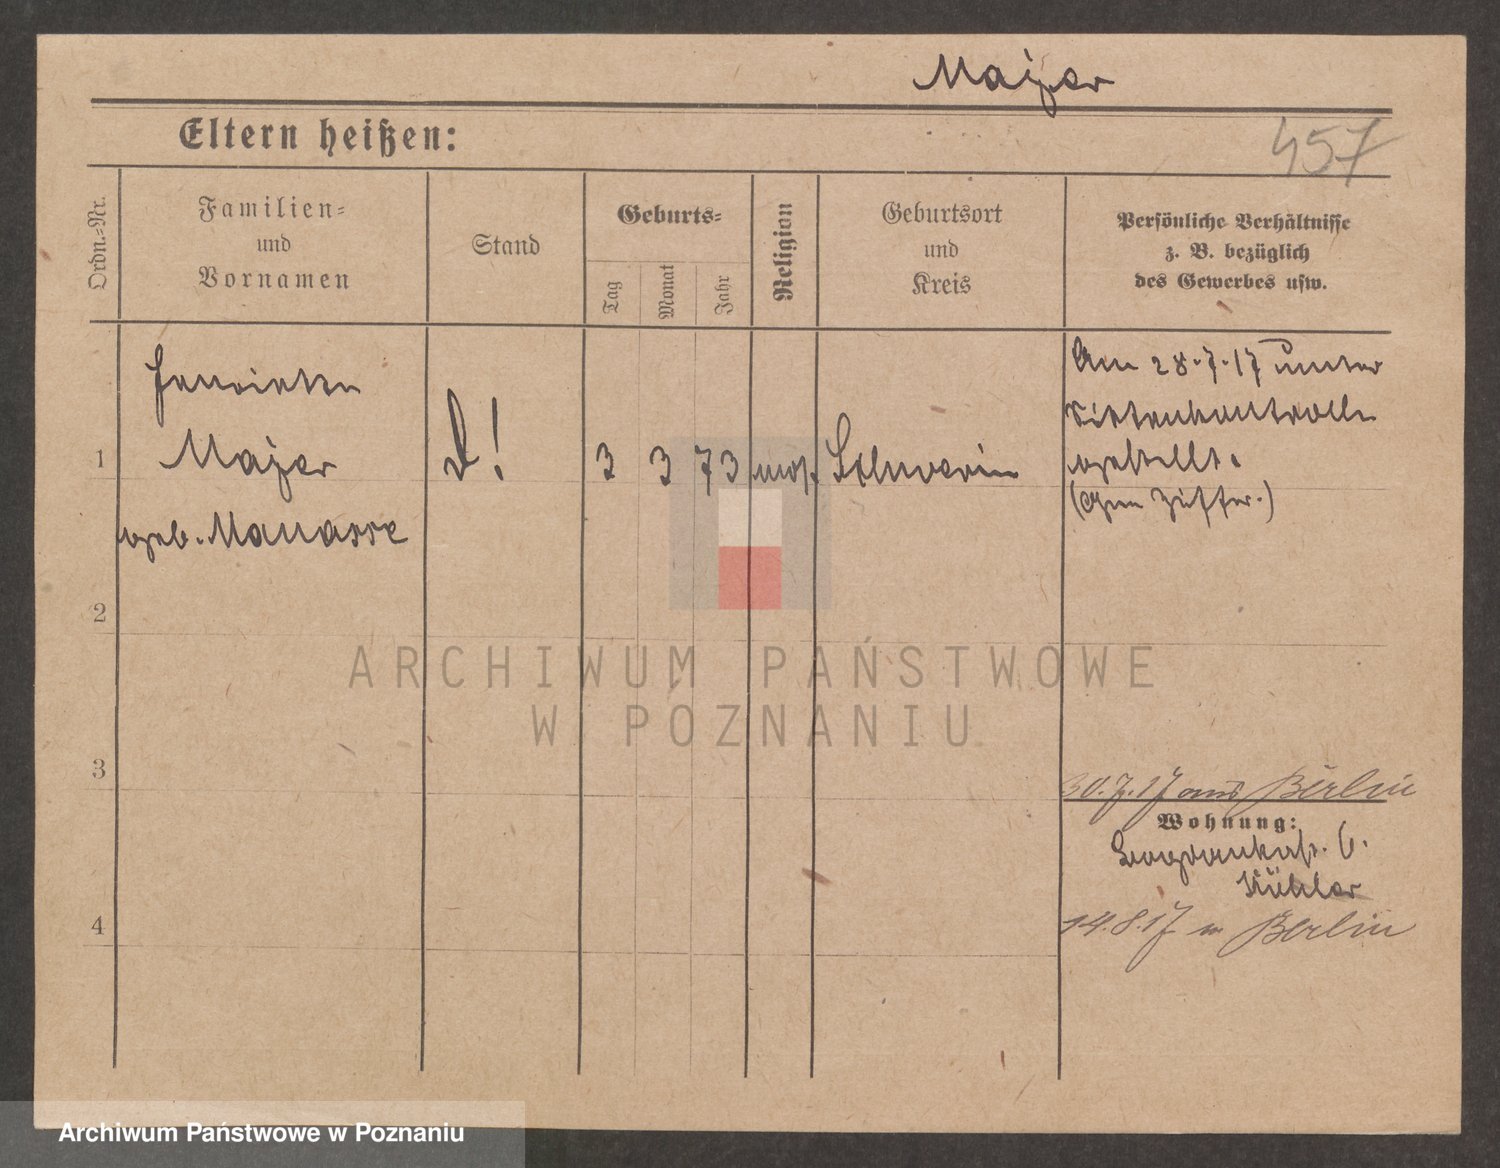 Majer
Eltern heißen:
457
Ordn.-Nr.
Familien-
und
Vornamen
Stand
Geburts-
Tag
Monat
Jahr
Religion
Geburtsort
und
Kreis
Persönliche Verhältnisse
z. B. bezüglich
des Gewerbes usw.
Henriette
1 Majer
geb. Manasse
3 3 73 mos. Schwerin
Am 28.7.17 unter
Sittenkontrolle
gestellt.
2
3
4
30.7.17 aus Berlin
Wohnung:
6.
Köhler
14.8.17 n Berlin
ARCHIWUM PAŃSTWOWE
W POZNANIU
Archiwum Państwowe w Poznaniu